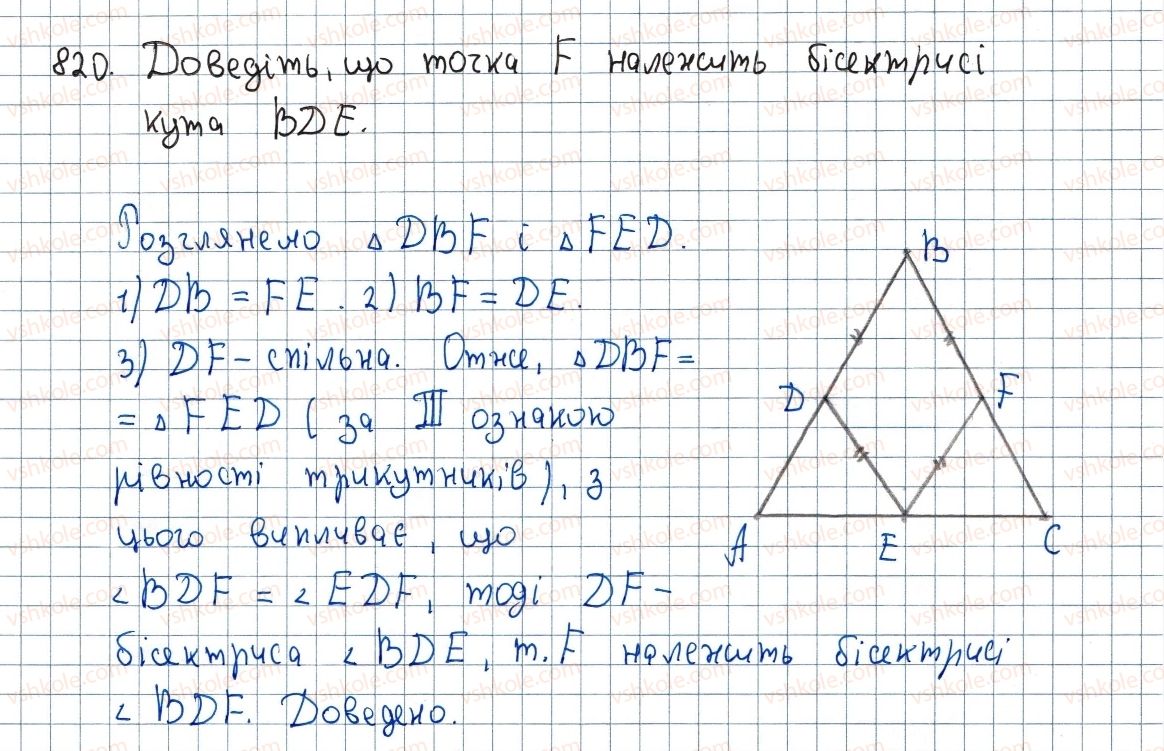 820. Доведіть, що точка F належить бісектрисі
кута BDE.
Розглянемо △DBF і △FED.
1) DB = FE. 2) BF = DE.
3) DF – спільна. Отже, △DBF =
= △FED (за III ознакою
рівності трикутників), з
цього випливає, що
∠BDF = ∠EDF, тоді DF –
бісектриса ∠BDE, т. F належить бісектрисі
∠BDF. Доведено.
B
D
F
A
E
C
vshkole.com